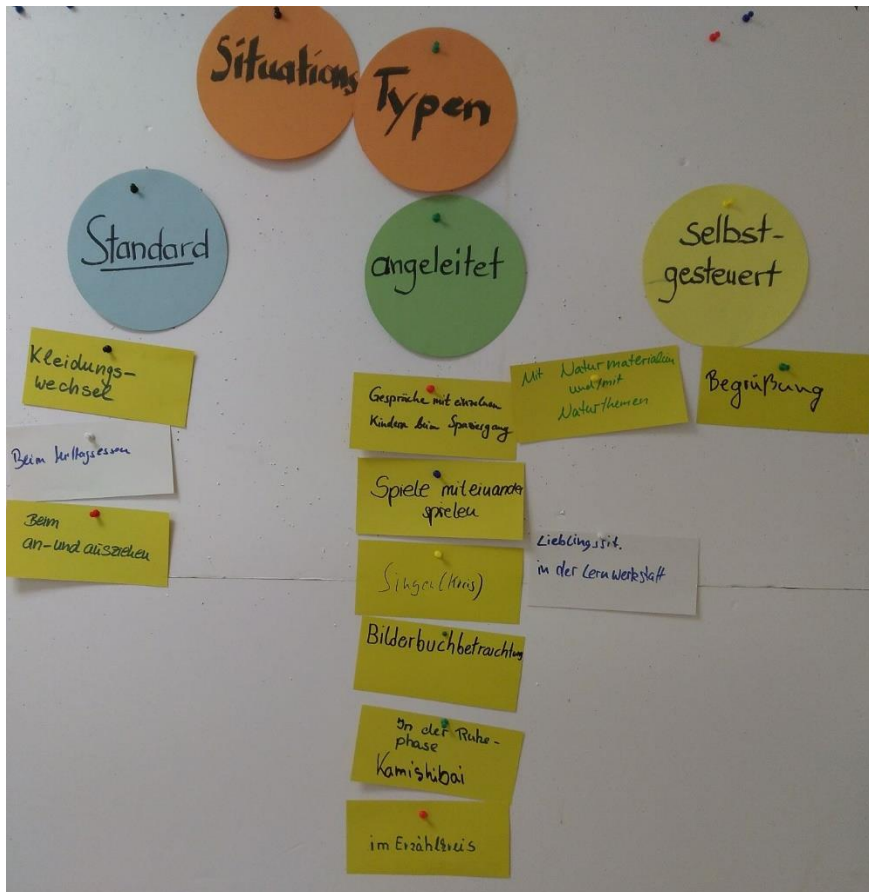 Situations
Typen
Standard
angeleitet
Selbst-
gesteuert
Kleidungs-
wechsel
Beim Mittagessen
Beim
an- und ausziehen
Gespräche mit einzelnen
Kindern beim Spaziergang
Spiele miteinander
spielen
Singen (Kreis)
Bilderbuchbetrachtung
In der Ruhe-
phase
Kamishibai
im Erzählkreis
Mit Naturmaterialien
und/mit
Naturthemen
Lieblingssit.
in der Lernwerkstatt
Begrüßung